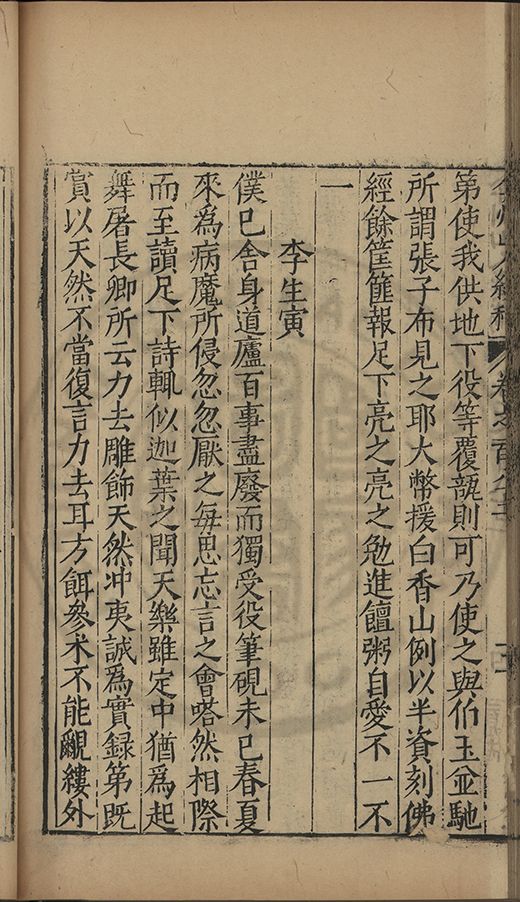 第使我供地下役等覆瓿則可乃使之與伯玉並馳
所謂張子布見之耶大幣援白香山例以半資刻佛
經餘筐篚報足下亮之亮之勉進饘粥自愛不一不
一
李生寅
僕已舍身道廬百事盡廢而獨受役筆硯未已春夏
來為病魔所侵忽忽厭之每思忘言之會嗒然相際
而至讀足下詩輒似迦葉之聞天樂雖定中猶為起
舞屠長卿所云力去雕飾天然冲夷誠爲實録第既
賞以天然不當復言力去耳方餌參术不能覼縷外